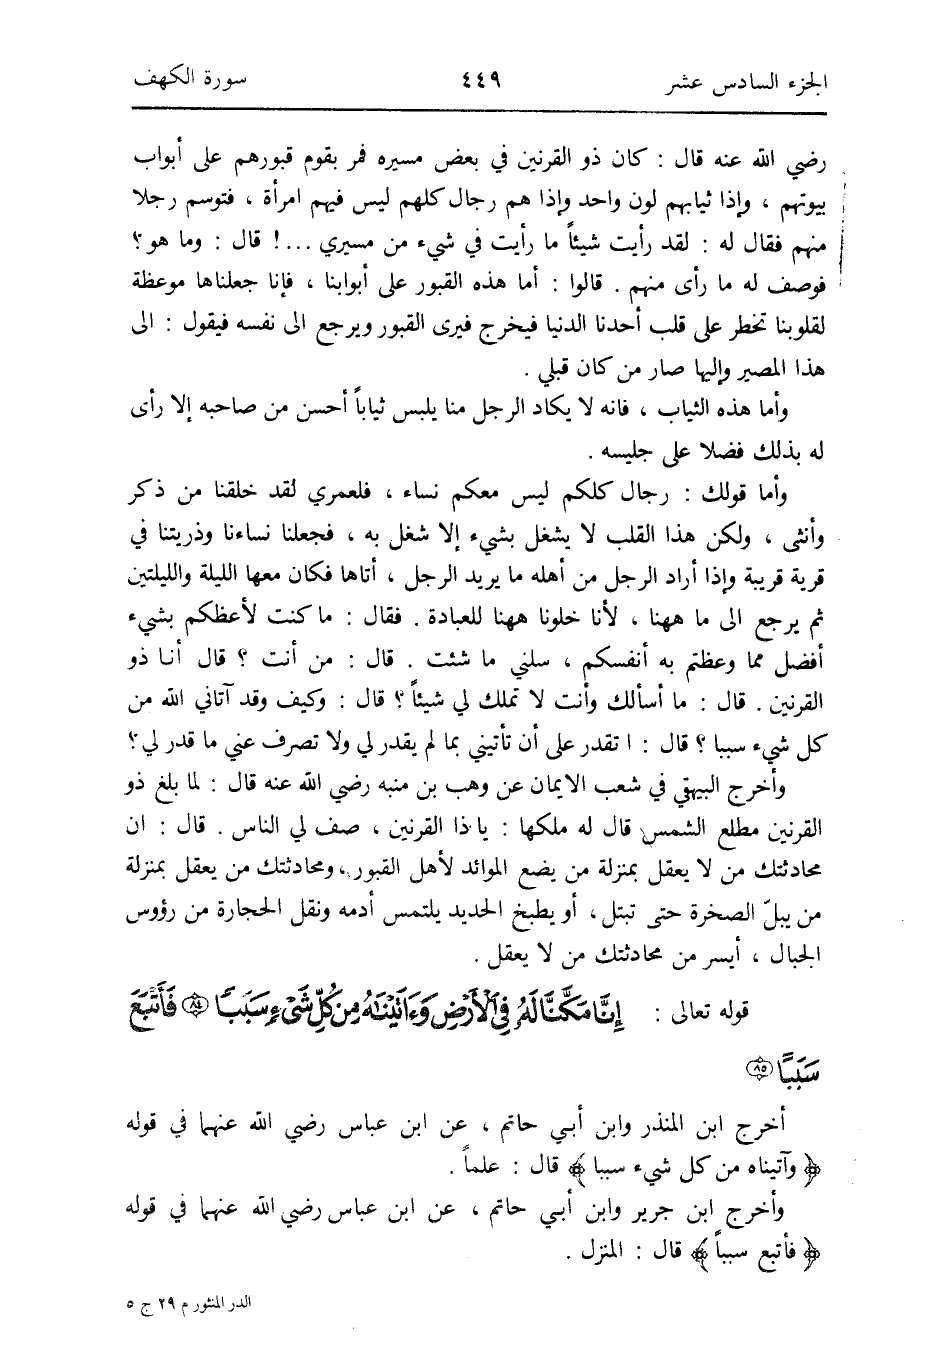 الجزء السادس عشر ٤٤٩ سورة الكهف
رضي الله عنه قال : كان ذو القرنين في بعض مسيره فمر بقوم قبورهم على أبواب
بيوتهم ، وإذا ثيابهم لون واحد وإذا هم رجال كلهم ليس فيهم امرأة ، فتوسم رجلا
منهم فقال له : لقد رأيت شيئاً ما رأيت في شيء من مسيري ...! قال : وما هو؟
فوصف له ما رأى منهم . قالوا : أما هذه القبور على أبوابنا ، فإنا جعلناها موعظة
لقلوبنا تخطر على قلب أحدنا الدنيا فيخرج فيرى القبور ويرجع الى نفسه فيقول : الى
هذا المصير وإليها صار من كان قبلي .
وأما هذه الثياب ، فانه لا يكاد الرجل منا يلبس ثياباً أحسن من صاحبه إلا رأى
له بذلك فضلا على جليسه .
وأما قولك : رجال كلكم ليس معكم نساء ، فلعمري لقد خلقنا من ذكر
وأنثى ، ولكن هذا القلب لا يشغل بشيء إلا شغل به ، فجعلنا نساءنا وذريتنا في
قرية قريبة وإذا أراد الرجل من أهله ما يريد الرجل ، أتاها فكان معها الليلة والليلتين
ثم يرجع الى ما ههنا ، لأنا خلونا ههنا للعبادة . فقال : ما كنت لأعظكم بشيء
أفضل مما وعظتم به أنفسكم ، سلني ما شئت . قال : من أنت ؟ قال أنا ذو
القرنين . قال : ما أسألك وأنت لا تملك لي شيئاً ؟ قال : وكيف وقد آتاني الله من
كل شيء سببا ؟ قال : ا تقدر على أن تأتيني بما لم يقدر لي ولا تصرف عني ما قدر لي؟
وأخرج البيهقي في شعب الايمان عن وهب بن منبه رضي الله عنه قال : لما بلغ ذو
القرنين مطلع الشمس قال له ملكها : يا ذا القرنين ، صف لي الناس . قال : ان
محادثتك من لا يعقل بمنزلة من يضع الموائد لأهل القبور ، ومحادثتك من يعقل بمنزلة
من يبلّ الصخرة حتى تبتل ، أو يطبخ الحديد يلتمس أدمه ونقل الحجارة من رؤوس
الجبال ، أيسر من محادثتك من لا يعقل .
قوله تعالى : إِنَّا مَكَّنَّا لَهُ فِي الْأَرْضِ وَءَاتَيْنَٰهُ مِن كُلِّ شَيْءٍ سَبَبًا ٨٤ فَأَتْبَعَ
سَبَبًا ٨٥
أخرج ابن المنذر وابن أبي حاتم ، عن ابن عباس رضي الله عنهما في قوله
﴿ وآتيناه من كل شيء سببا ﴾ قال : علماً .
وأخرج ابن جرير وابن أبي حاتم ، عن ابن عباس رضي الله عنهما في قوله
﴿ فأتبع سبباً ﴾ قال : المنزل .
الدر المنثور م ٢٩ ج ٥